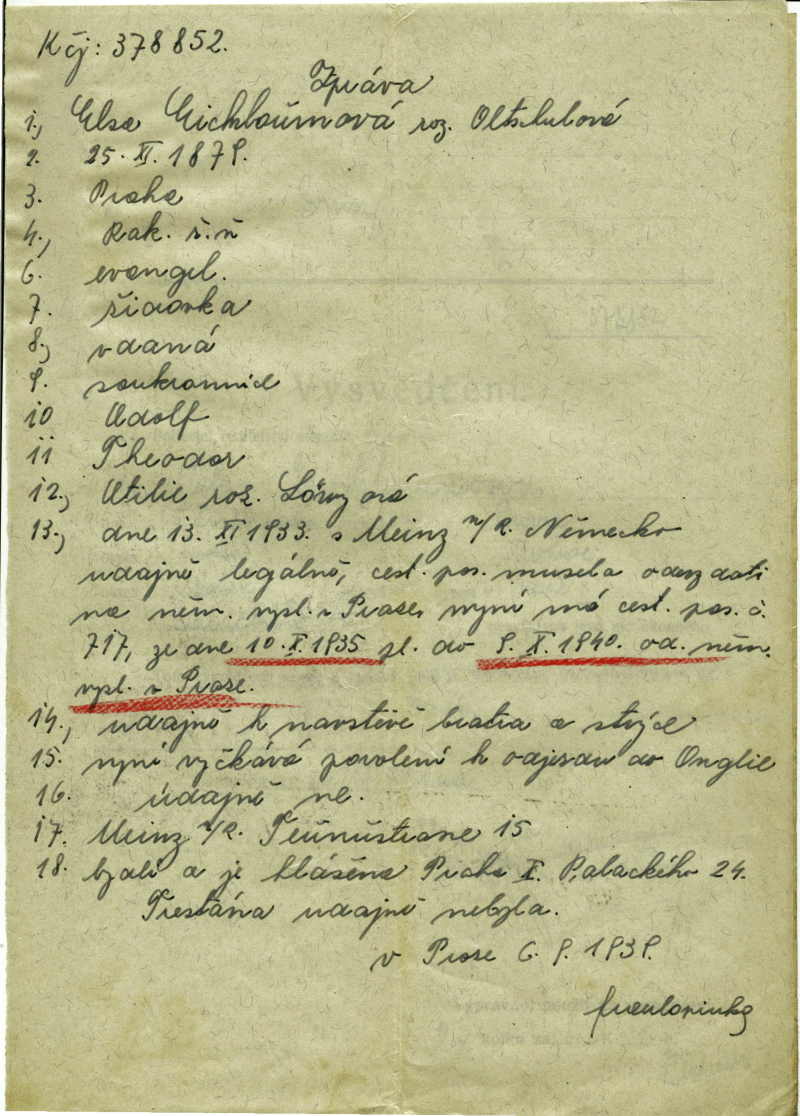 K čj: 378852.
Zpráva
1., Elsa Eichbaumová roz. Oltschulová
2. 25. XI. 1879.
3. Praha
4., Rak. ř. n
6. evangel.
7. židovka
8., vdaná
9. soukromnice
10 Adolf
11 Theodor
12., Otilie roz.
13., dne 13. XI 1933. s Meinz n/R. Německo
udajně legálně, cest. pas. musela odevzdati
na něm. vysl. v Praze, nyní má cest. pas. č.
717, ze dne 10. X. 1935 pl. do 9. X. 1940. od. něm.
vysl. v Praze.
14., udajně k navstěvě bratra a strýce
15. nyní vyčkává povolení k odjezdu do Anglie
16. údajně ne.
17. Meinz n/R. 15
18. bydlí a je hlášena Praha X. Palackého 24.
Trestána udajně nebyla.
v Praze 6. 9. 1939.